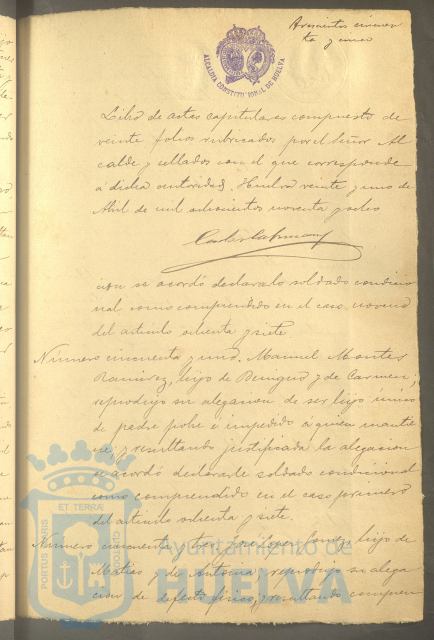 Doscientos cincuen
ta y uno
ALCALDIA CONSTITUCIONAL DE HUELVA
Libro de actas capitulares compuesto de
veinte folios rubricados por el Señor Al
calde y sellados con el que corresponde
a dicha autoridad. Huelva veinte y uno de
Abril de mil ochocientos noventa y ocho
cion se acordó declararlo soldado condicio
nal como comprendido en el caso noveno
del articulo ochenta y siete
Número cincuenta y uno. Manuel Montes
Ramirez, hijo de Benigno y de Carmen;
reprodujo su alegacion de ser hijo único
de padre pobre é impedido a quien mantie
ne; y resultando justificada la alegacion
se acordó declararle soldado condicional
como comprendido en el caso primero
del articulo ochenta y siete.
Número cincuenta y dos. José hijo de
Matias y de Antonia, reprodujo su alega
cion de defecto fisico, y resultando compren
PORTUS MARIS ET TERRÆ CUSTODIA
Ayuntamiento de
HUELVA